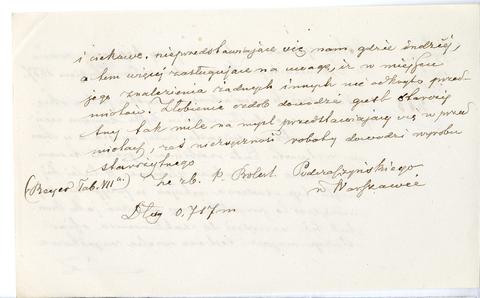 i ciekawe. nieprzedstawiające się nam gdzie indziéj,
a tem więcéj zasługujące na uwagę, iż w miejscu
jego znalezienia żadnych innych nie odkryto przed-
miotów. Żłobienie ozdób dowodzi gust staroży-
tny tak mile na myśl przedstawiający się w przed
miotach, zaś niezręczność roboty dowodzi wyrobu
starożytnego
(Beyer Tab. VIIa.) ze zb. P. Robert Podczaszyńskiego
w Warszawie
Dług 0,717 m